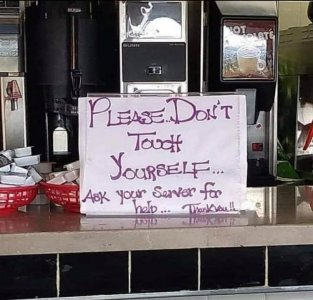 PLEASE.. DON'T
TOUCH
YOURSELF...
ASK YOUR SERVER FOR
help... Thank you!!